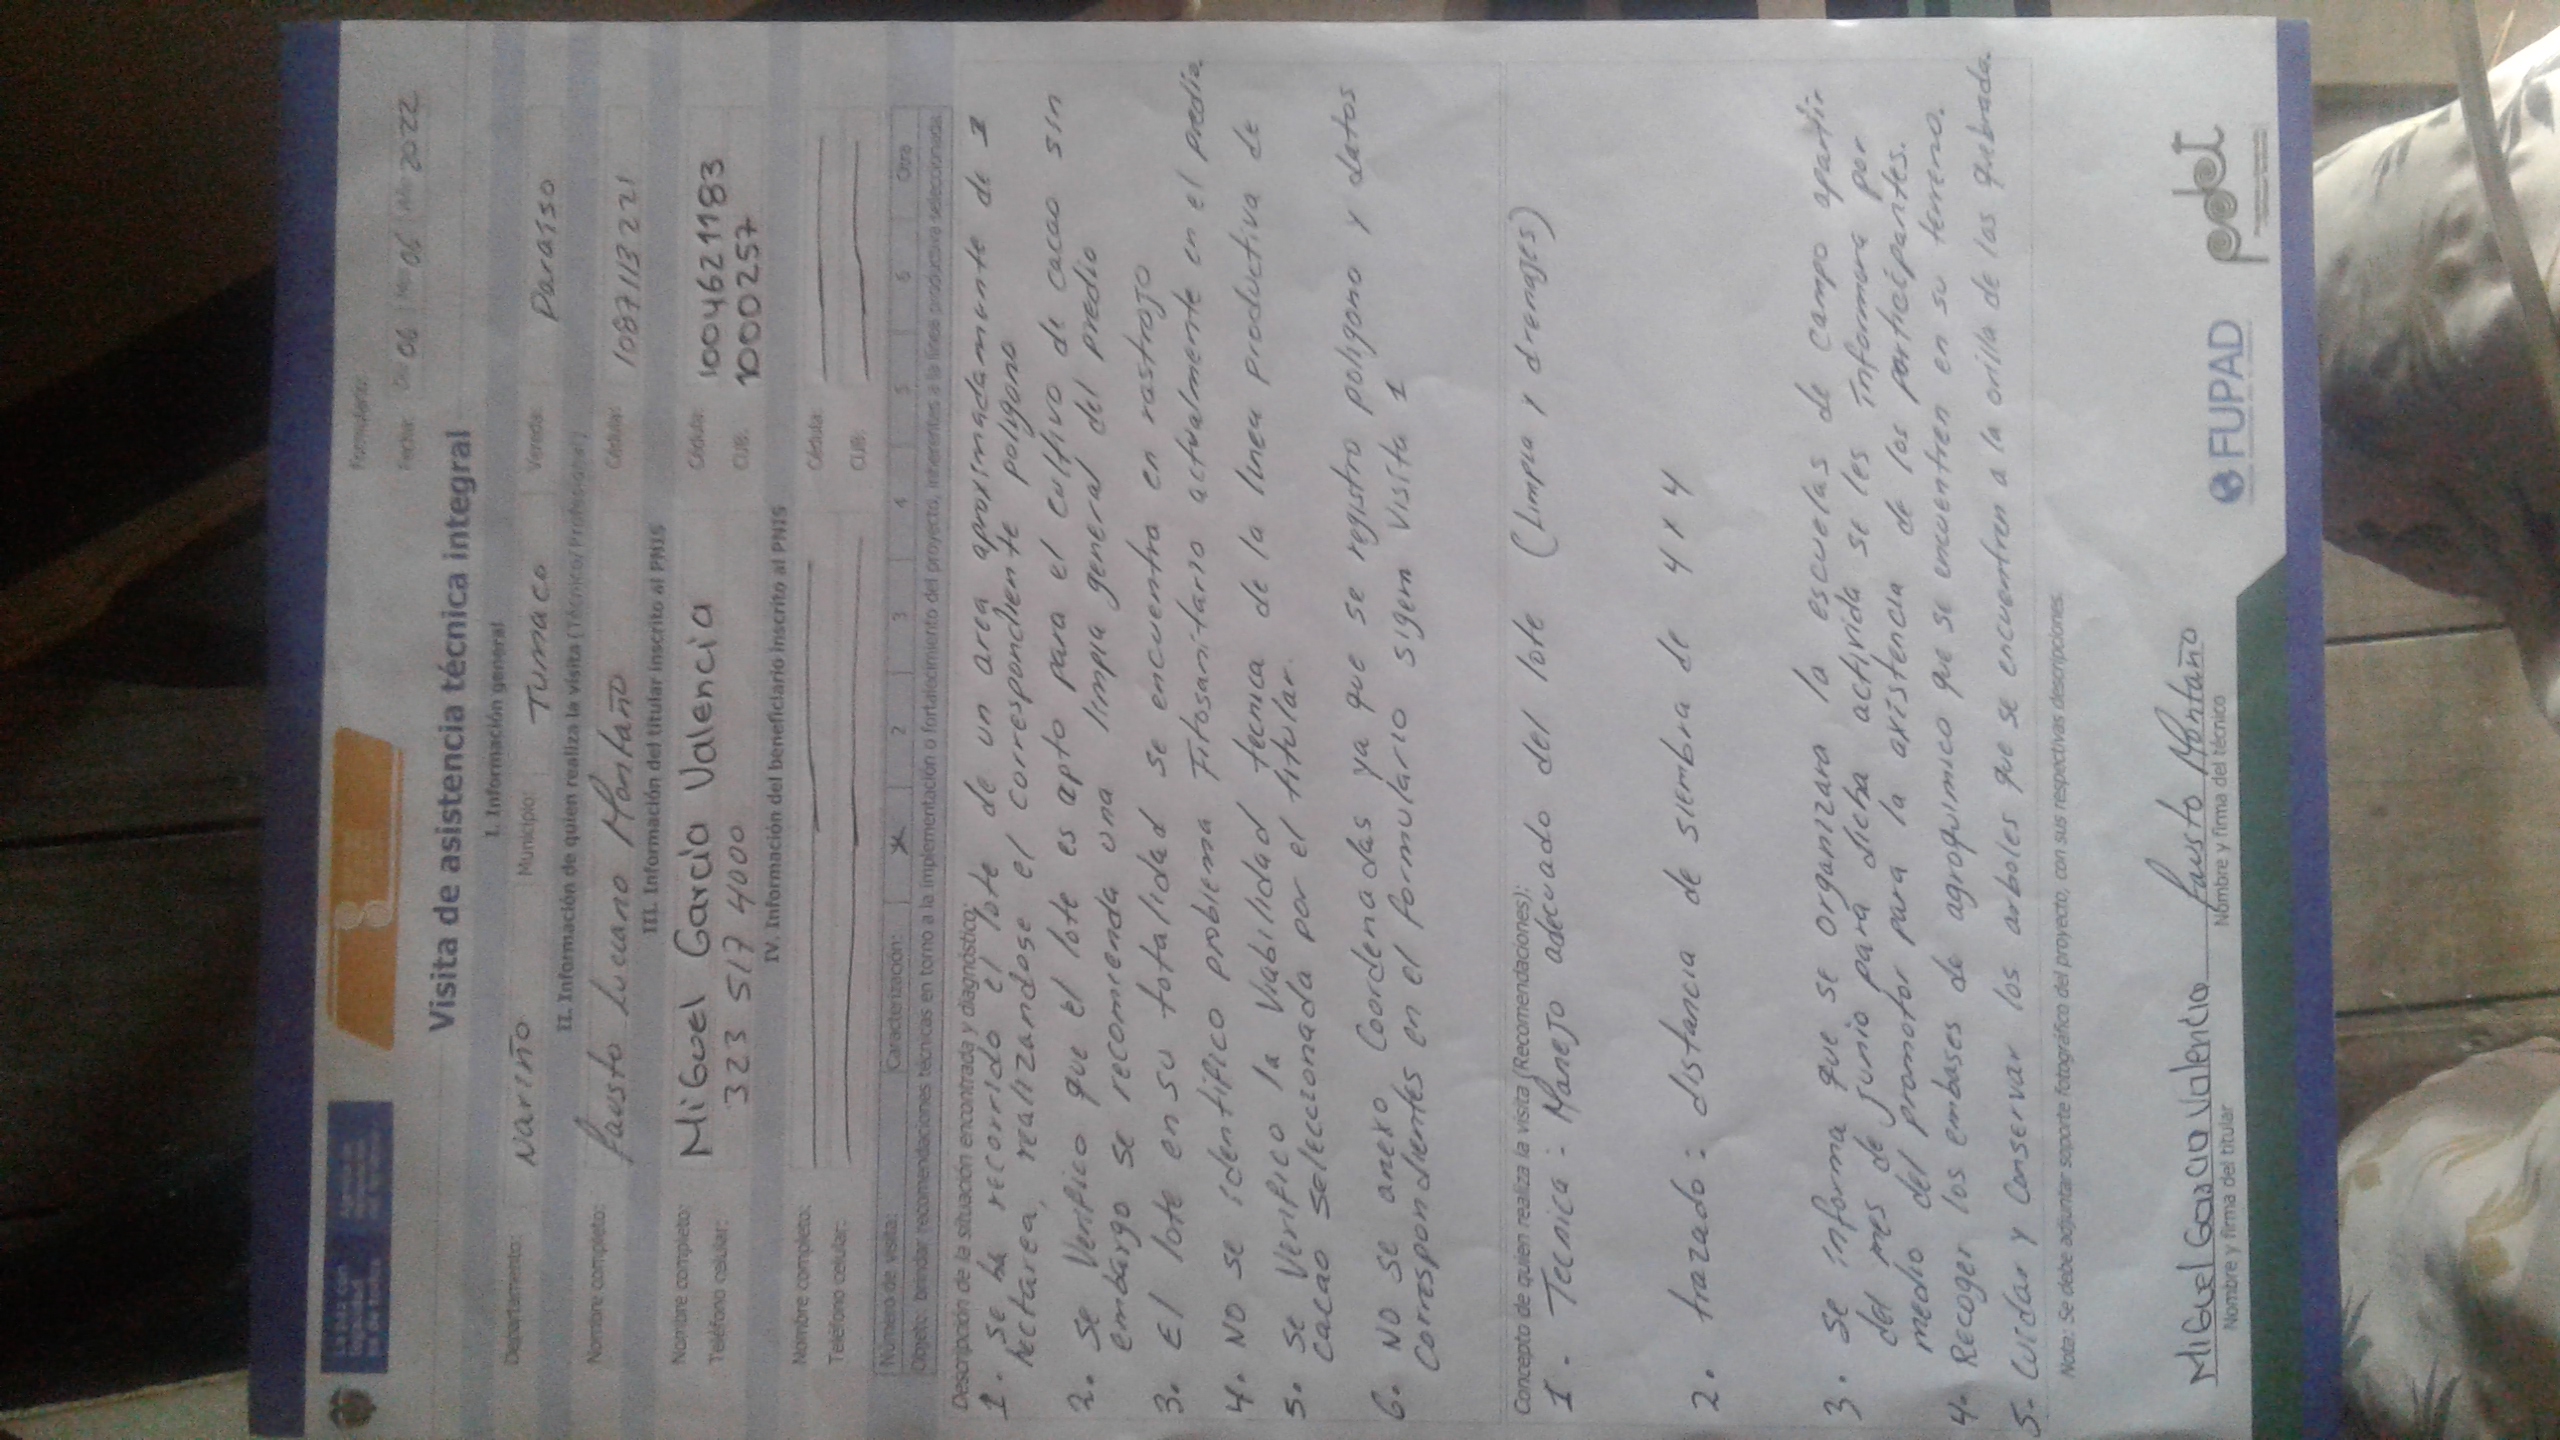 Formulario:
Fecha: Día 06 Mes 06 Año 2022
Visita de asistencia técnica integral
I. Información general
Departamento: Nariño Municipio: Tumaco Vereda: Paraiso
II. Información de quien realiza la visita (Técnico/ Profesional)
Nombre completo: Fausto Lucano Montaño Cédula: 1087113221
III. Información del titular inscrito al PNIS
Nombre completo: MiGuel García Valencia Cédula: 1004621183
Teléfono celular: 323 517 4000 CUB: 1000257
IV. Información del beneficiario inscrito al PNIS
Nombre completo: Cédula:
Teléfono celular: CUB:
Número de visita: Caracterización: 2 3 4 5 6 Otra
Objeto: brindar recomendaciones técnicas en torno a la implementación o fortalecimiento del proyecto, inherentes a la línea productiva seleccionada.
Descripción de la situación encontrada y diagnóstico:
1. se ha recorrido el lote de un area aproximadamente de 1
hectarea, realizandose el correspondiente poligono
2. se Verifico que el lote es apto para el cultivo de cacao sin
embargo se recomienda una limpia general del predio
3. El lote en su totalidad se encuentra en rastrojo
4. NO se identifico problema Fitosanitario actualmente en el predio
5. se Verifico la Viabilidad tecnica de la linea productiva de
cacao seleccionada por el titular.
6. NO se anexo Coordenadas ya que se registro poligono y datos
correspondientes en el formulario sigem Visita 1
Concepto de quien realiza la visita (Recomendaciones):
1. Tecnica: Manejo adecuado del lote (Limpia y drenajes)
2. trazado: distancia de siembra de 4 x 4
3. se informa que se organizara la escuelas de campo apartir
del mes de junio para dicha activida se les informara por
medio del promotor para la axistencia de los participantes.
4. Recoger los embases de agroquimico que se encuentren en su terreno.
5. Cuidar y Conservar los arboles que se encuentren a la orilla de las quebrada.
Nota: Se debe adjuntar soporte fotográfico del proyecto, con sus respectivas descripciones.
MiGuel García Valencia Fausto Montaño
Nombre y firma del titular Nombre y firma del técnico
FUPAD pdet